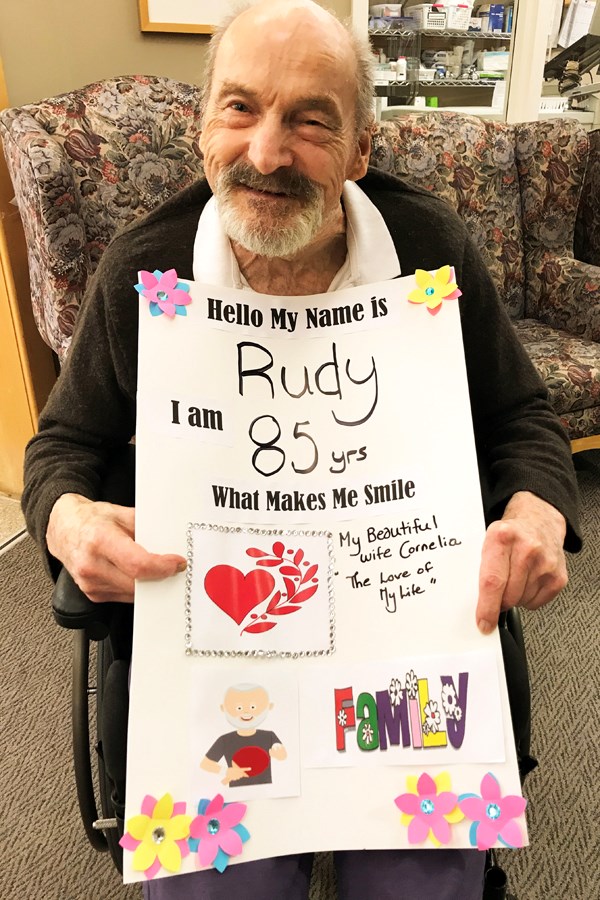 Hello My Name is
Rudy
I am
85 yrs
What Makes Me Smile
My Beautiful
wife Cornelia
"The Love of
My Life"
FAMILY